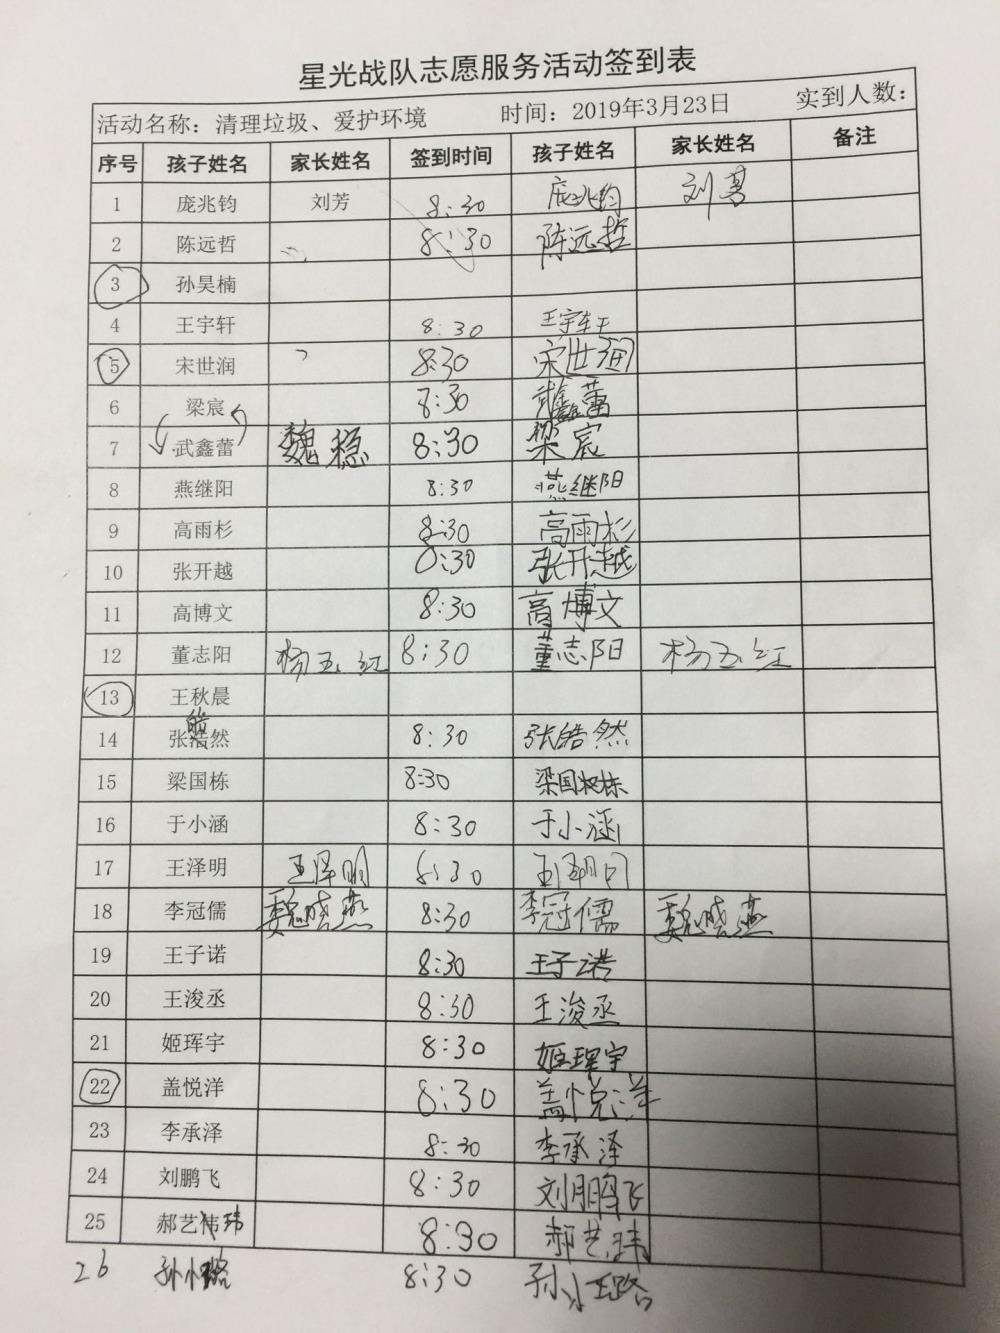 星光战队志愿服务活动签到表
活动名称：清理垃圾、爱护环境 时间：2019年3月23日 实到人数：
序号 孩子姓名 家长姓名 签到时间 孩子姓名 家长姓名 备注
1 庞兆钧 刘芳 8:30 庞兆钧 刘芳
2 陈远哲 8:30 陈远哲
3 孙昊楠
4 王宇轩 8:30 王宇轩
5 宋世润 8:30 宋世润
6 梁宸 8:30 武鑫蕾
7 武鑫蕾 魏稳 8:30 梁宸
8 燕继阳 8:30 燕继阳
9 高雨杉 8:30 高雨杉
10 张开越 8:30 张开越
11 高博文 8:30 高博文
12 董志阳 杨玉红 8:30 董志阳 杨玉红
13 王秋晨
14 张皓然 8:30 张皓然
15 梁国栋 8:30 梁国栋
16 于小涵 8:30 于小涵
17 王泽明 王泽明 8:30 王泽明
18 李冠儒 魏晓燕 8:30 李冠儒 魏晓燕
19 王子诺 8:30 王子诺
20 王浚丞 8:30 王浚丞
21 姬珲宇 8:30 姬珲宇
22 盖悦洋 8:30 盖悦洋
23 李承泽 8:30 李承泽
24 刘鹏飞 8:30 刘鹏飞
25 郝艺玮 8:30 郝艺玮
26 孙小璐 8:30 孙小璐